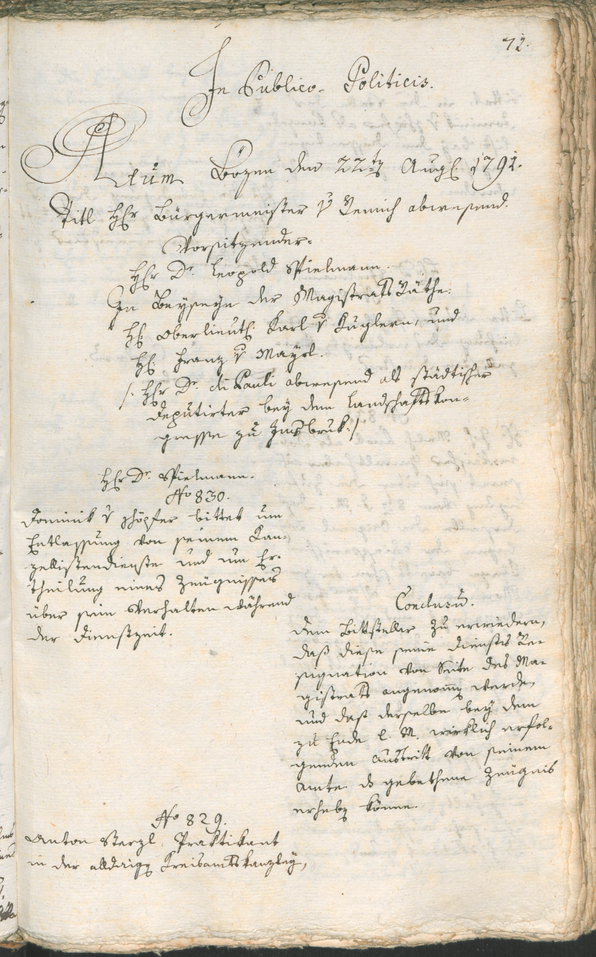 72.
In Publico-Politicis.
Actum Bozen den 22ten Augt 1791.
Titl Hr Bürgermeister v Remich abwesend.
Vorsitzender.
Hr Dr. Leopold Spielmann.
In Beyseyn der Magistrats Räthe:
Hr Oberlieut: Karl v Kuglern, und
Hr Franz v Mayrl.
/: Hr Dr. di Pauli abwesend als städtischer
Deputirter bey dem Landschaftskon-
gresse zu Insbruk :/
Hr Dr. Spielmann.
No 830.
Dominik v Höpfer bittet um
Entlassung von seinem Kan-
zellistendienste und um Er-
theilung eines Zeugnisses
über sein Verhalten während
der Dienstzeit.
Conclusu.
Dem Bittsteller zu erwiedern,
daß diese seine Dienstes Re-
signation von Seite des Ma-
gistrats angenomen werde,
und daß derselbe bey dem
zu Ende l. M. wirklich erfol-
genden Austritt von seinem
Amte das gebethene Zeugnis
erheben könne.
No 829.
Anton Sterzl Praktikant
in der alldrigen Kreisamtskanzley,